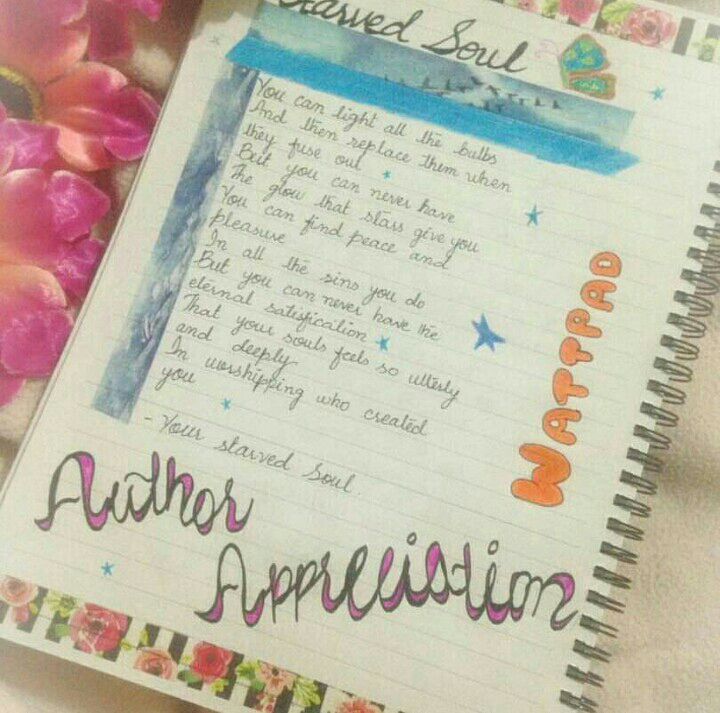 Starved Soul
You can light all the bulbs
And then replace them when
they fuse out
But you can never have
The glow that stars give you
You can find peace and
pleasure
In all the sins you do
But you can never have the
eternal satisfication
That your souls feels so utterly
and deeply
In worshipping who created
you
- Your starved Soul.
WATTPAD
Author
Appreciation